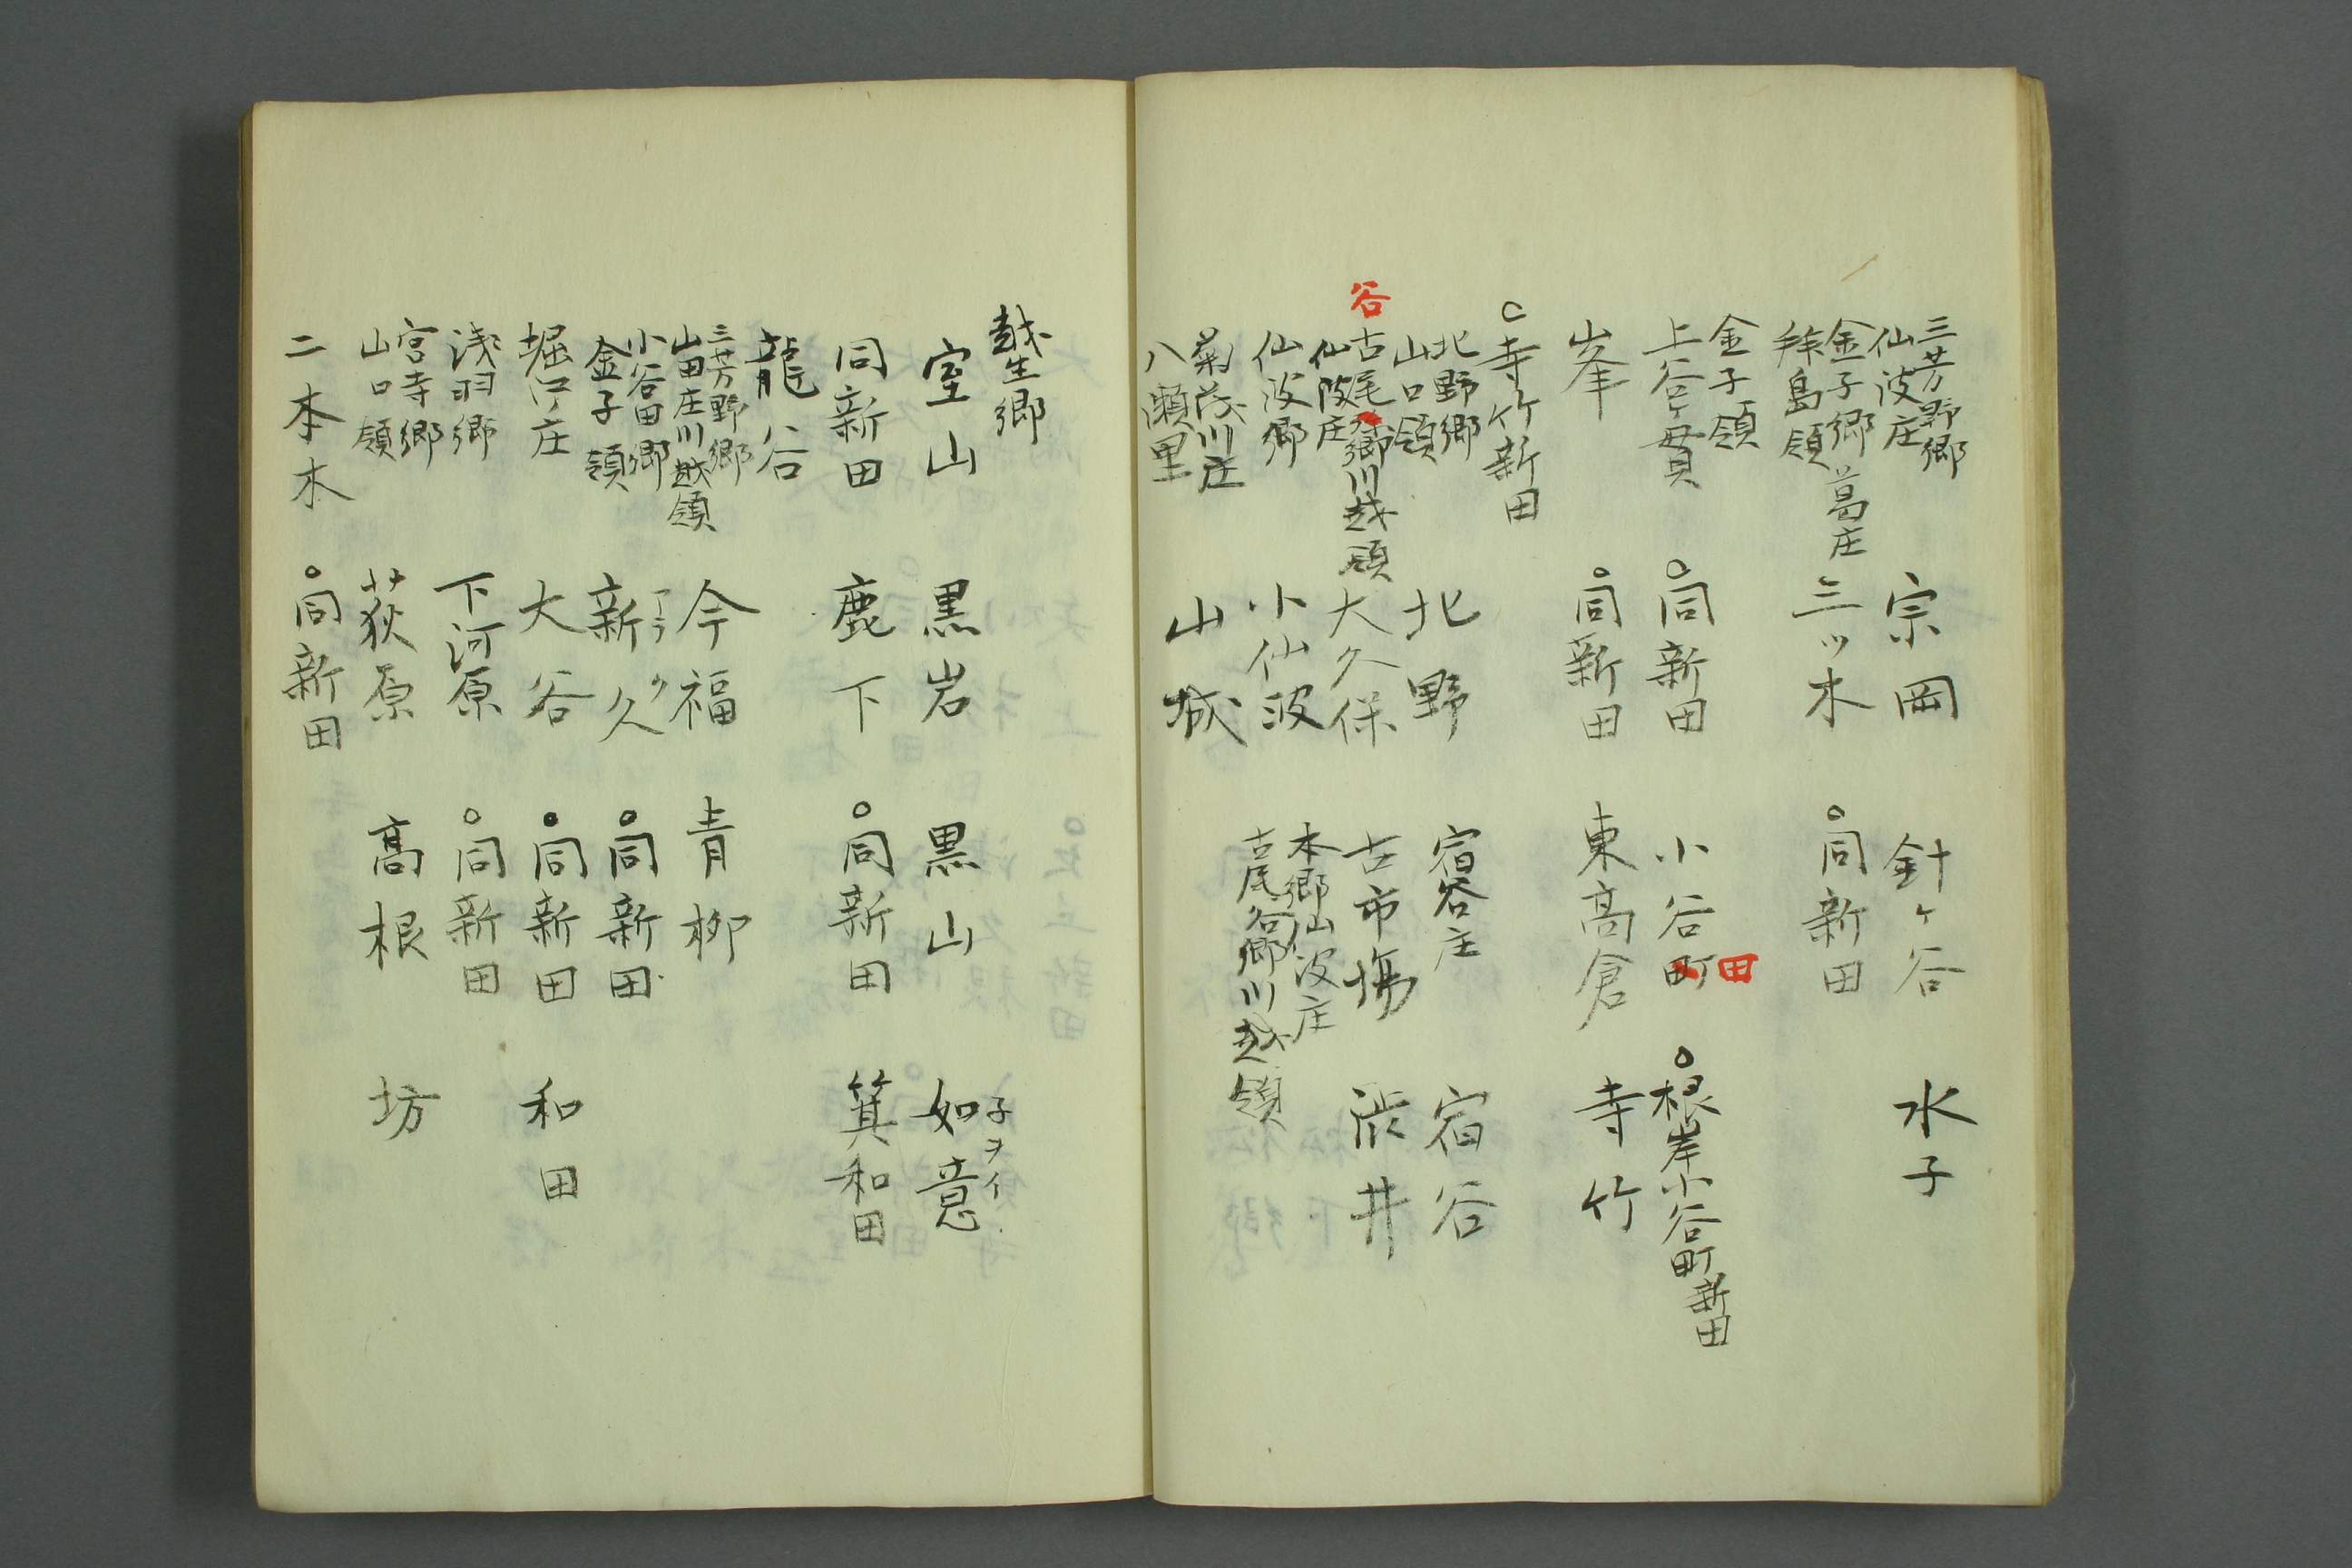 三芳野郷
仙波庄　宗岡　針ヶ谷　水子
金子郷　葛庄
拜島領　三ツ木　○同新田
金子領
上谷ヶ貫　○同新田　小谷町　田　○根岸小谷町新田
峯　○同新田　東高倉　寺竹
○寺竹新田
北野郷
山口領　北野　宿谷庄　宿谷
谷
古尾郷川越領
仙波庄　大久保　古市場　渋井
仙波郷　小仙波　本郷山波庄
古尾谷郷川越領
菊茂川庄
八瀬里　山城
越生郷
室山　黒岩　黒山　如意
子ヲイ
同新田　鹿下　○同新田　箕和田
龍谷
三芳野郷
山田庄川越領　今福　青柳
小谷田郷　アラク
金子領　新久　○同新田
堀江庄　大谷　○同新田　和田
浅羽郷　下河原　○同新田
宮寺郷
山口領　荻原　髙根　坊
二本木　○同新田